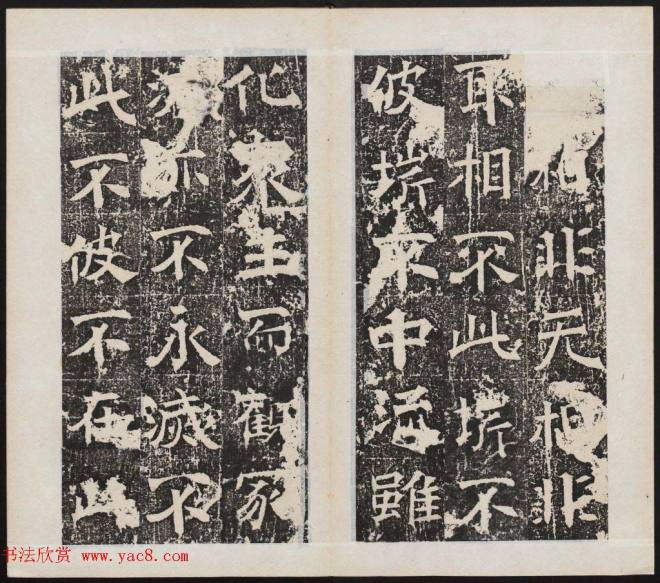 相非无相非
取相不此岸不
彼岸不中流雖
化衆生而觀寂
滅亦不永滅不
此不彼不在此
书法欣赏 www.yac8.com